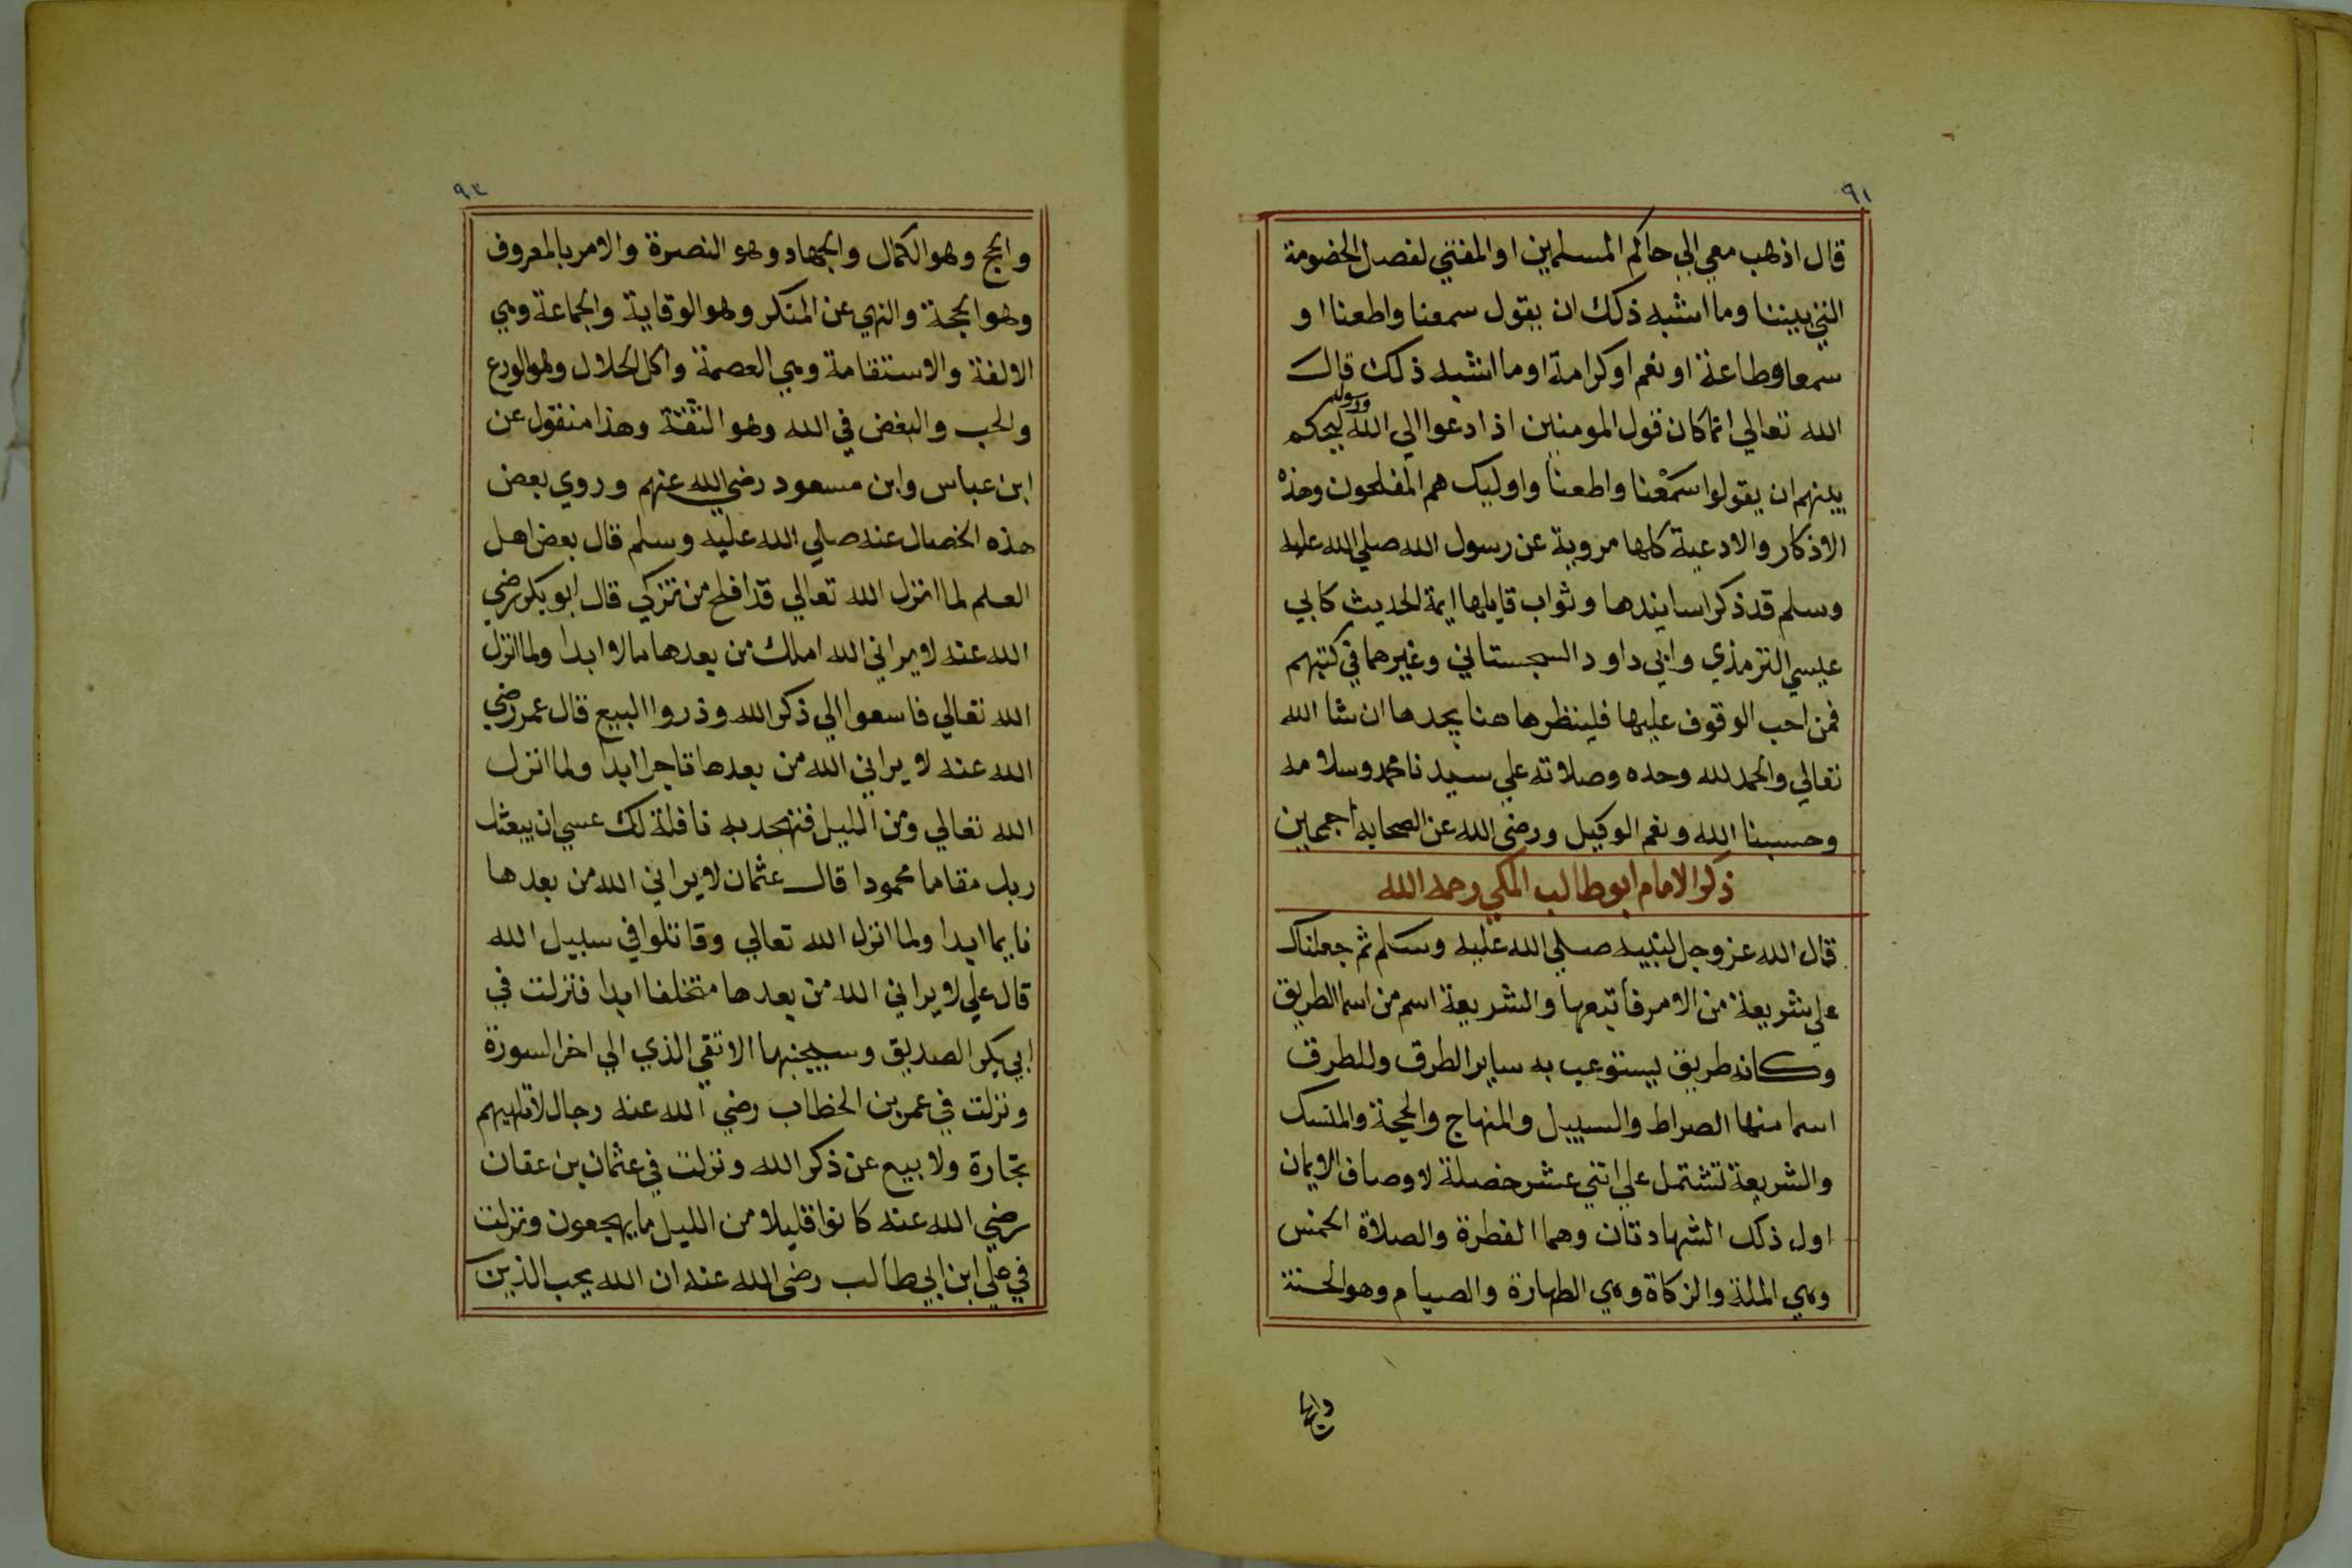 ٩١
قال اذهب معي الي حاكم المسلمين او المفتي لفصل الخصومة
التي بيننا وما اشبه ذلك ان يقول سمعنا واطعنا او
سمعا وطاعة او نعم او كرامة او ما اشبه ذلك قال
الله تعالي انما كان قول المومنين اذا دعوا الي الله ورسوله ليحكم
بينهم ان يقولوا سمعنا واطعنا واوليك هم المفلحون وهذه
الاذكار والادعية كلها مروية عن رسول الله صلي الله عليه
وسلم قد ذكر اسانيدها وثواب قايلها ايمة الحديث كابي
عيسي الترمذي وابي داود السجستاني وغيرهما في كتبهم
فمن احب الوقوف عليها فلينظرها هنا يجدها ان شا الله
تعالي والحمد لله وحده وصلاته علي سيدنا محمد وسلامه
وحسبنا الله ونعم الوكيل ورضي الله عن الصحابه اجمعين
ذكر الامام ابو طالب المكي رحمه الله
قال الله عز وجل لنبيه صلي الله عليه وسلم ثم جعلناك
علي شريعة من الامر فاتبعها والشريعة اسم من اسما الطريق
وكانه طريق يستوعب به ساير الطرق وللطرق
اسما منها الصراط والسبيل والمنهاج والمحجة والمنسك
والشريعة تشتمل علي اثني عشر خصلة لاوصاف الايمان
اول ذلك الشهادتان وهما الفطرة والصلاة الخمس
وهي الملة والزكاة وهي الطهارة والصيام وهو الجنة
والحج
٩٢
والحج وهو الكمال والجهاد وهو النصرة والامر بالمعروف
وهو الحجة والنهي عن المنكر وهو الوقاية والجماعة وهي
الالفة والاستقامة وهي العصمة واكل الحلال وهو الورع
والحب والبغض في الله وهو الثقة وهذا منقول عن
ابن عباس وابن مسعود رضي الله عنهم وروي بعض
هذه الخصال عنه صلي الله عليه وسلم قال بعض اهل
العلم لما انزل الله تعالي قد افلح من تزكي قال ابو بكر رضي
الله عنه لا يراني الله املك من بعدها مالا ابدا ولما انزل
الله تعالي فاسعوا الي ذكر الله وذروا البيع قال عمر رضي
الله عنه لا يراني الله من بعدها تاجرا ابدا ولما انزل
الله تعالي ومن الليل فتهجد به نافلة لك عسي ان يبعثك
ربك مقاما محمودا قال عثمان لا يراني الله من بعدها
نايما ابدا ولما انزل الله تعالي وقاتلوا في سبيل الله
قال علي لا يراني الله من بعدها متخلفا ابدا فنزلت في
ابي بكر الصديق وسيجنبها الاتقي الذي الي اخر السورة
ونزلت في عمر بن الخطاب رضي الله عنه رجال لا تلهيهم
تجارة ولا بيع عن ذكر الله ونزلت في عثمان بن عفان
رضي الله عنه كانوا قليلا من الليل ما يهجعون ونزلت
في علي ابن ابي طالب رضي الله عنه ان الله يحب الذين